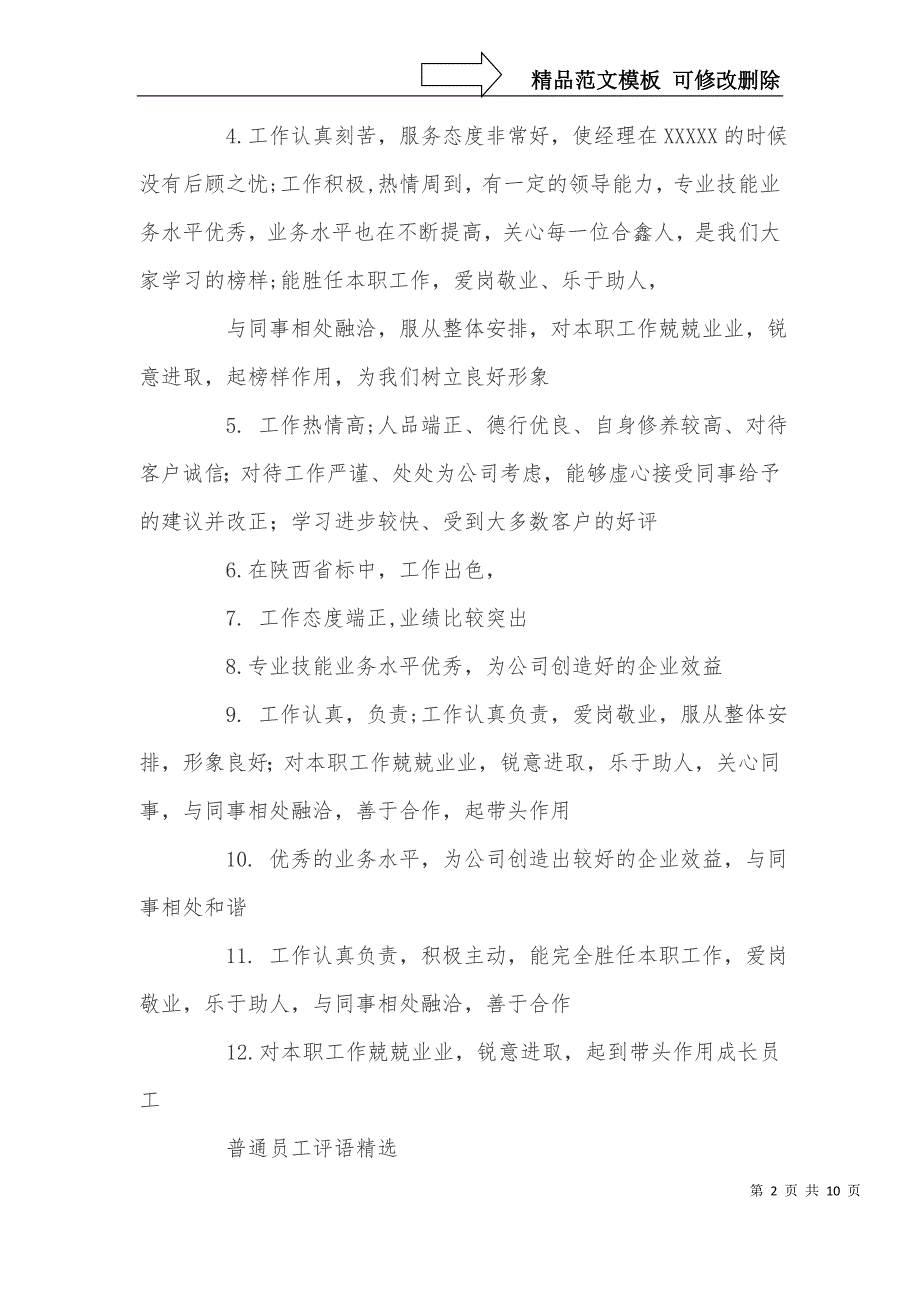 精品范文模板 可修改删除
4.工作认真刻苦，服务态度非常好，使经理在XXXXX的时候
没有后顾之忧;工作积极,热情周到，有一定的领导能力，专业技能业
务水平优秀，业务水平也在不断提高，关心每一位合鑫人，是我们大
家学习的榜样;能胜任本职工作，爱岗敬业、乐于助人，
与同事相处融洽，服从整体安排，对本职工作兢兢业业，锐
意进取，起榜样作用，为我们树立良好形象
5. 工作热情高;人品端正、德行优良、自身修养较高、对待
客户诚信；对待工作严谨、处处为公司考虑，能够虚心接受同事给予
的建议并改正；学习进步较快、受到大多数客户的好评
6.在陕西省标中，工作出色，
7. 工作态度端正,业绩比较突出
8.专业技能业务水平优秀，为公司创造好的企业效益
9. 工作认真，负责;工作认真负责，爱岗敬业，服从整体安
排，形象良好；对本职工作兢兢业业，锐意进取，乐于助人，关心同
事，与同事相处融洽，善于合作，起带头作用
10. 优秀的业务水平，为公司创造出较好的企业效益，与同
事相处和谐
11. 工作认真负责，积极主动，能完全胜任本职工作，爱岗
敬业，乐于助人，与同事相处融洽，善于合作
12.对本职工作兢兢业业，锐意进取，起到带头作用成长员
工
普通员工评语精选
第 2 页 共 10 页